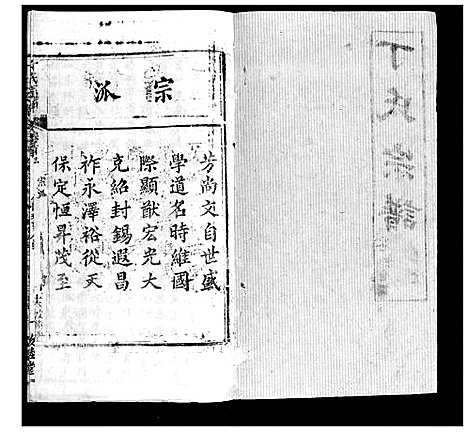 丁氏宗譜
宗派
芳尚文自世盛
學道名時維國
際顯猷宏光大
克紹封錫遐昌
祚永澤裕從天
保定恒昇茂至
宗派